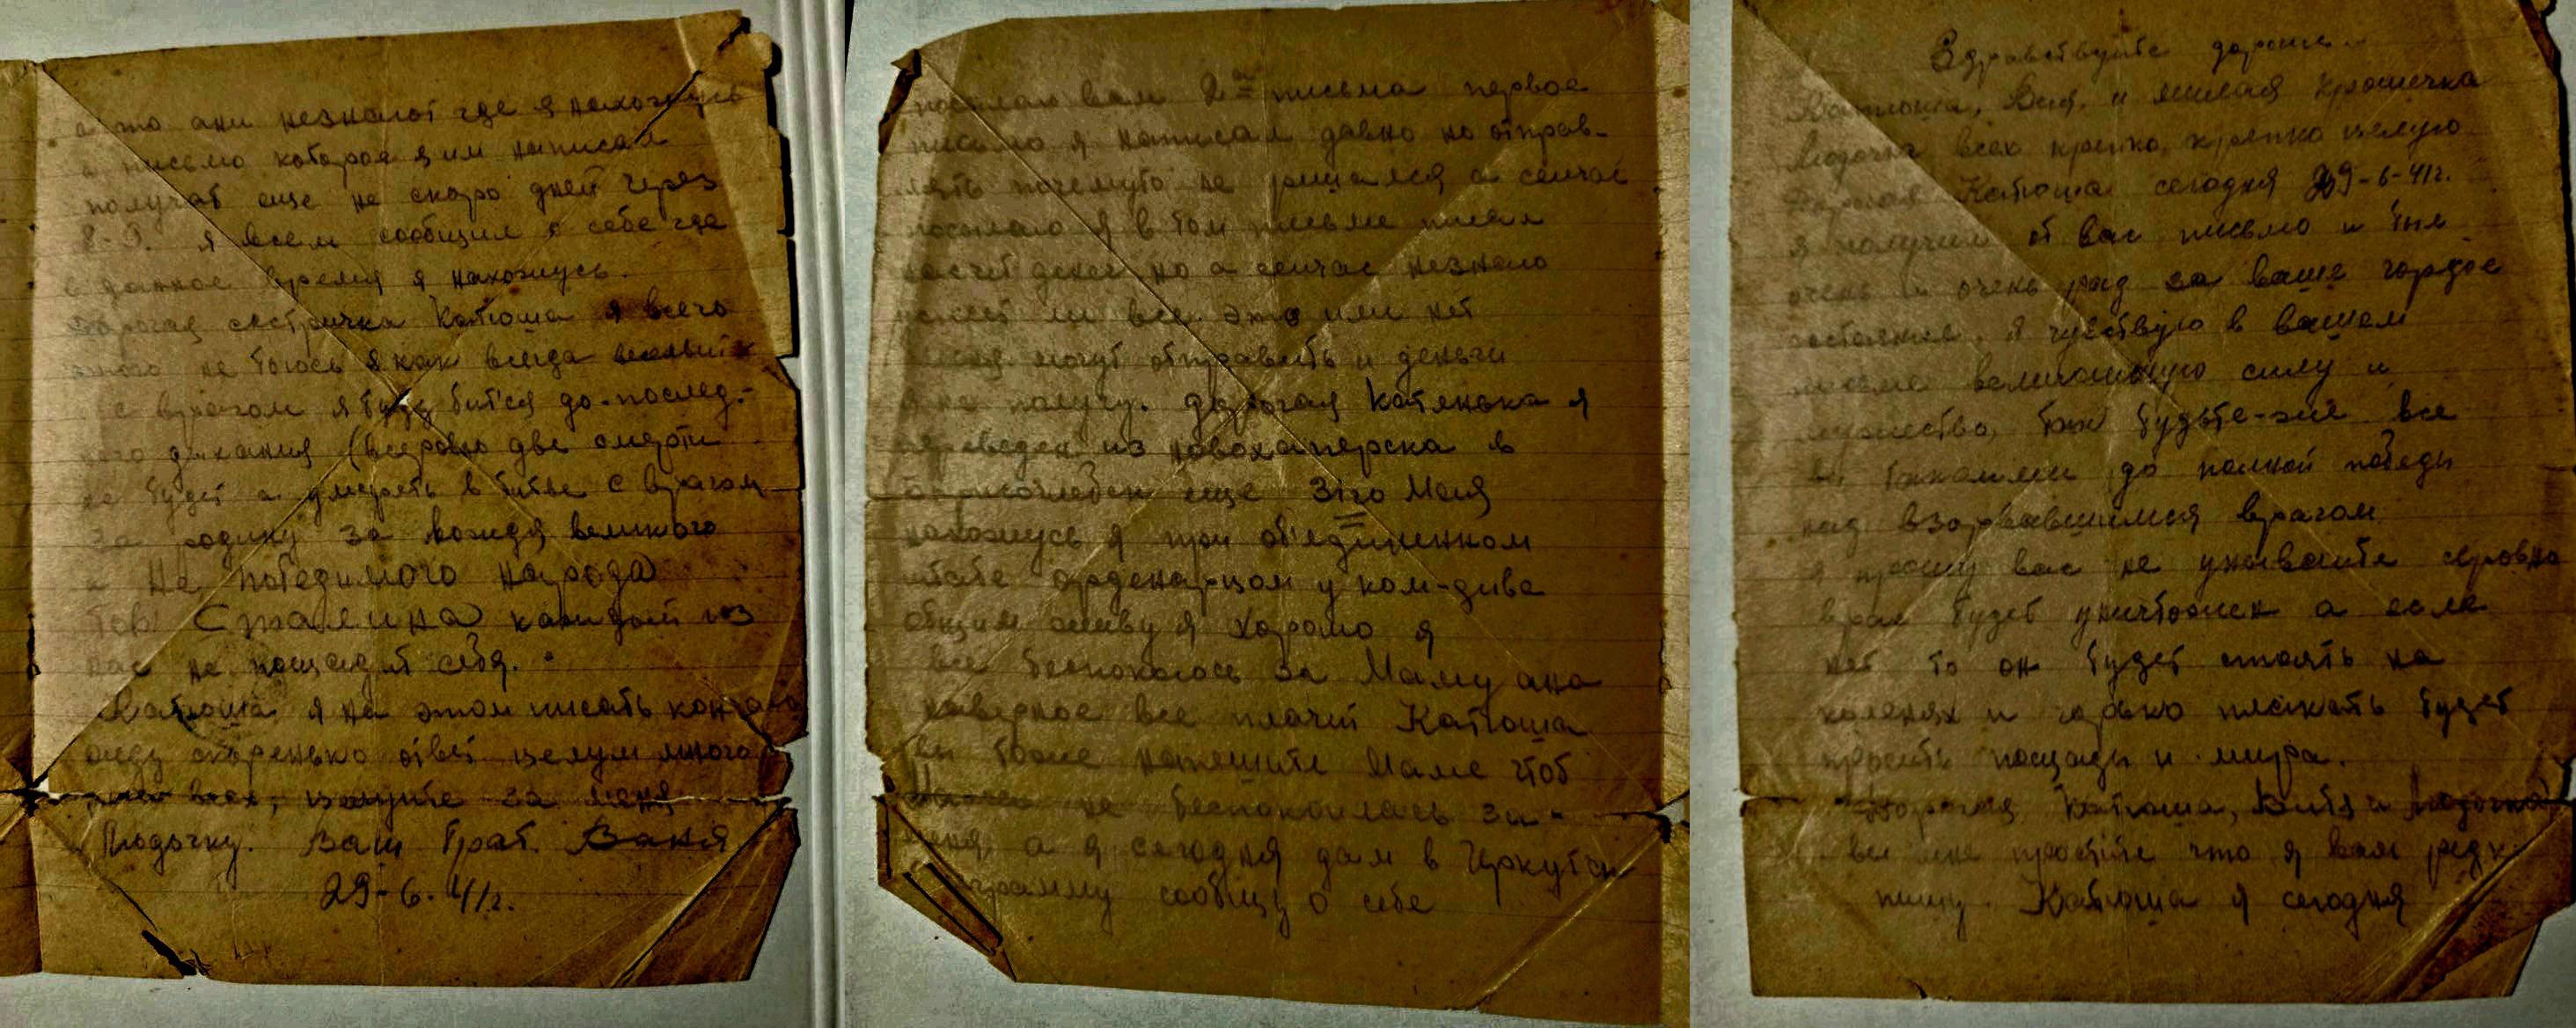 Здравствуйте дорогие
Катюша, Витя и милая крошечка
Людочка всех крепко, крепко целую
Дорогая Катюша сегодня 29-6-41г.
я получил от вас письмо и был
очень и очень рад за ваше гордое
состояние. Я чувствую в вашем
письме величайшую силу и
мужество, так будьте-же все
вы такими до полной победы
над взорвавшимся врагом
я прошу вас не унывайте сёровно
враг будет уничтожен а если
нет то он будет стоять на
коленях и горько плакать будет
просить пощады и мира.
Дорогая Катюша, Витя и Людочка
вы мне простите что я вам редко
пишу. Катюша я сегодня
посылаю вам 2а письма первое
письмо я написал давно но отправ-
лять почемуто не решался а сейчас
посылаю я в том письме писал
насчёт денег но а сейчас незнаю
может ли все это или нет
могут отправить и деньги
я не получу. дорогая Катенька я
переведен из новохаперска в
Борисоглебск еще 31го Мая
нахожусь я при об'единенном
штабе орденарцом у ком-дива
общим живу я хорошо я
все беспокоюсь за Маму ана
наверное все плачит Катюша
вы тоже напешите Маме чтоб
не беспокоилась за-
меня, а я сегодня дам в Иркутск
телеграмму сообщу о себе
а то ани незнают где я нахожусь
а письмо которое я им написал
получат еще не скоро дней через
8-9. я всем сообщил о себе где
в данное время я нахожусь.
Дорогая сестричка Катюша я всего
этого не боюсь я как всегда
с врагом я буду биться до-послед-
него дыхания (всёровно две смерти
не будет а умереть в битве с врагом
за родину за вождя великого
и не победимого народа
тов Сталина каждый из
нас не пощадит себя.
Катюша я на этом писать кончаю
жду скоренько ответ целую много
раз всех, целуйте за меня
Людочку. Ваш брат Ваня
29-6-41г.